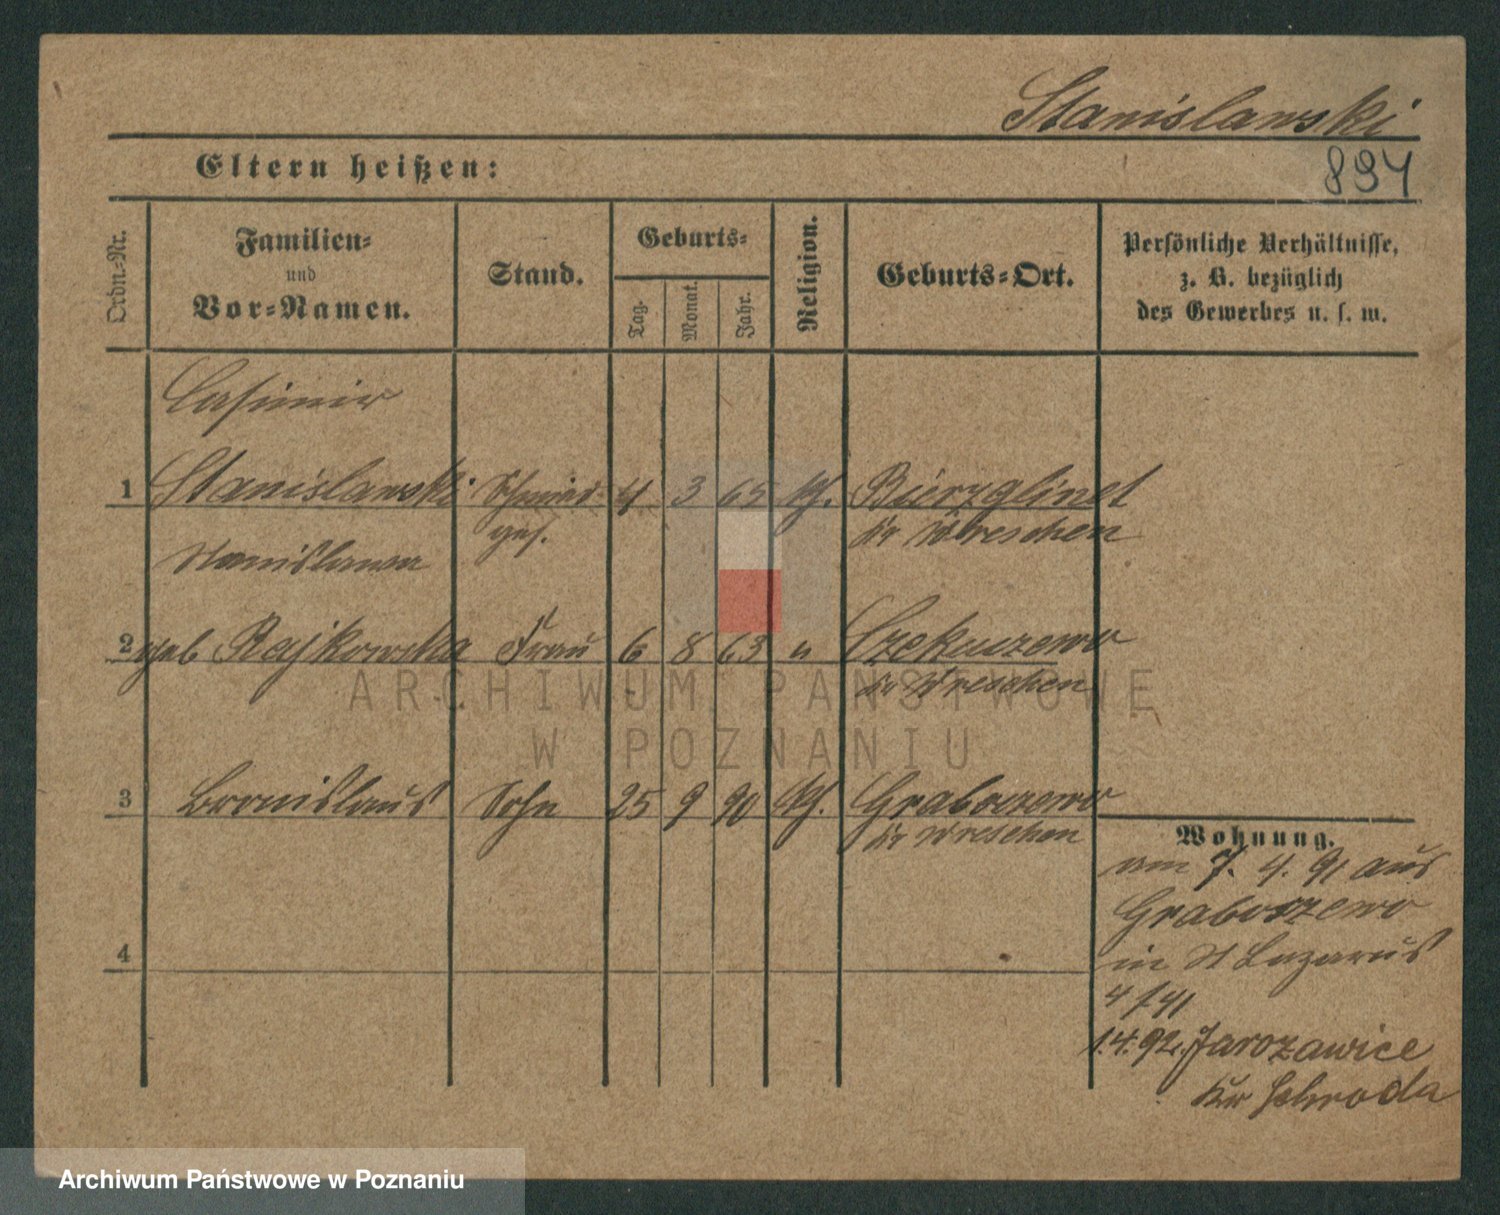 Stanislawski
Eltern heißen:
894
Ordn.-Nr.
Familien-
und
Vor-Namen.
Stand.
Geburts-
Tag.
Monat.
Jahr.
Religion.
Geburts-Ort.
Persönliche Verhältnisse,
z. B. bezüglich
des Gewerbes u. s. w.
Casimir
1 Stanislawski Schmied 4 3 65 kth. Bierzglinek
ges. Kr Wreschen
Stanislawa
2 geb Rajkowska Frau 6 8 63 " Czekuszewo
Kr Wreschen
3 Bronislaus Sohn 25 9 90 kth. Graboszewo
Kr Wreschen
4
Wohnung.
am 7. 4. 91 aus
Graboszewo
in St Lazarus
1.4.92. Jarozawice
Kr Schroda
ARCHIWUM PAŃSTWOWE
W POZNANIU
Archiwum Państwowe w Poznaniu